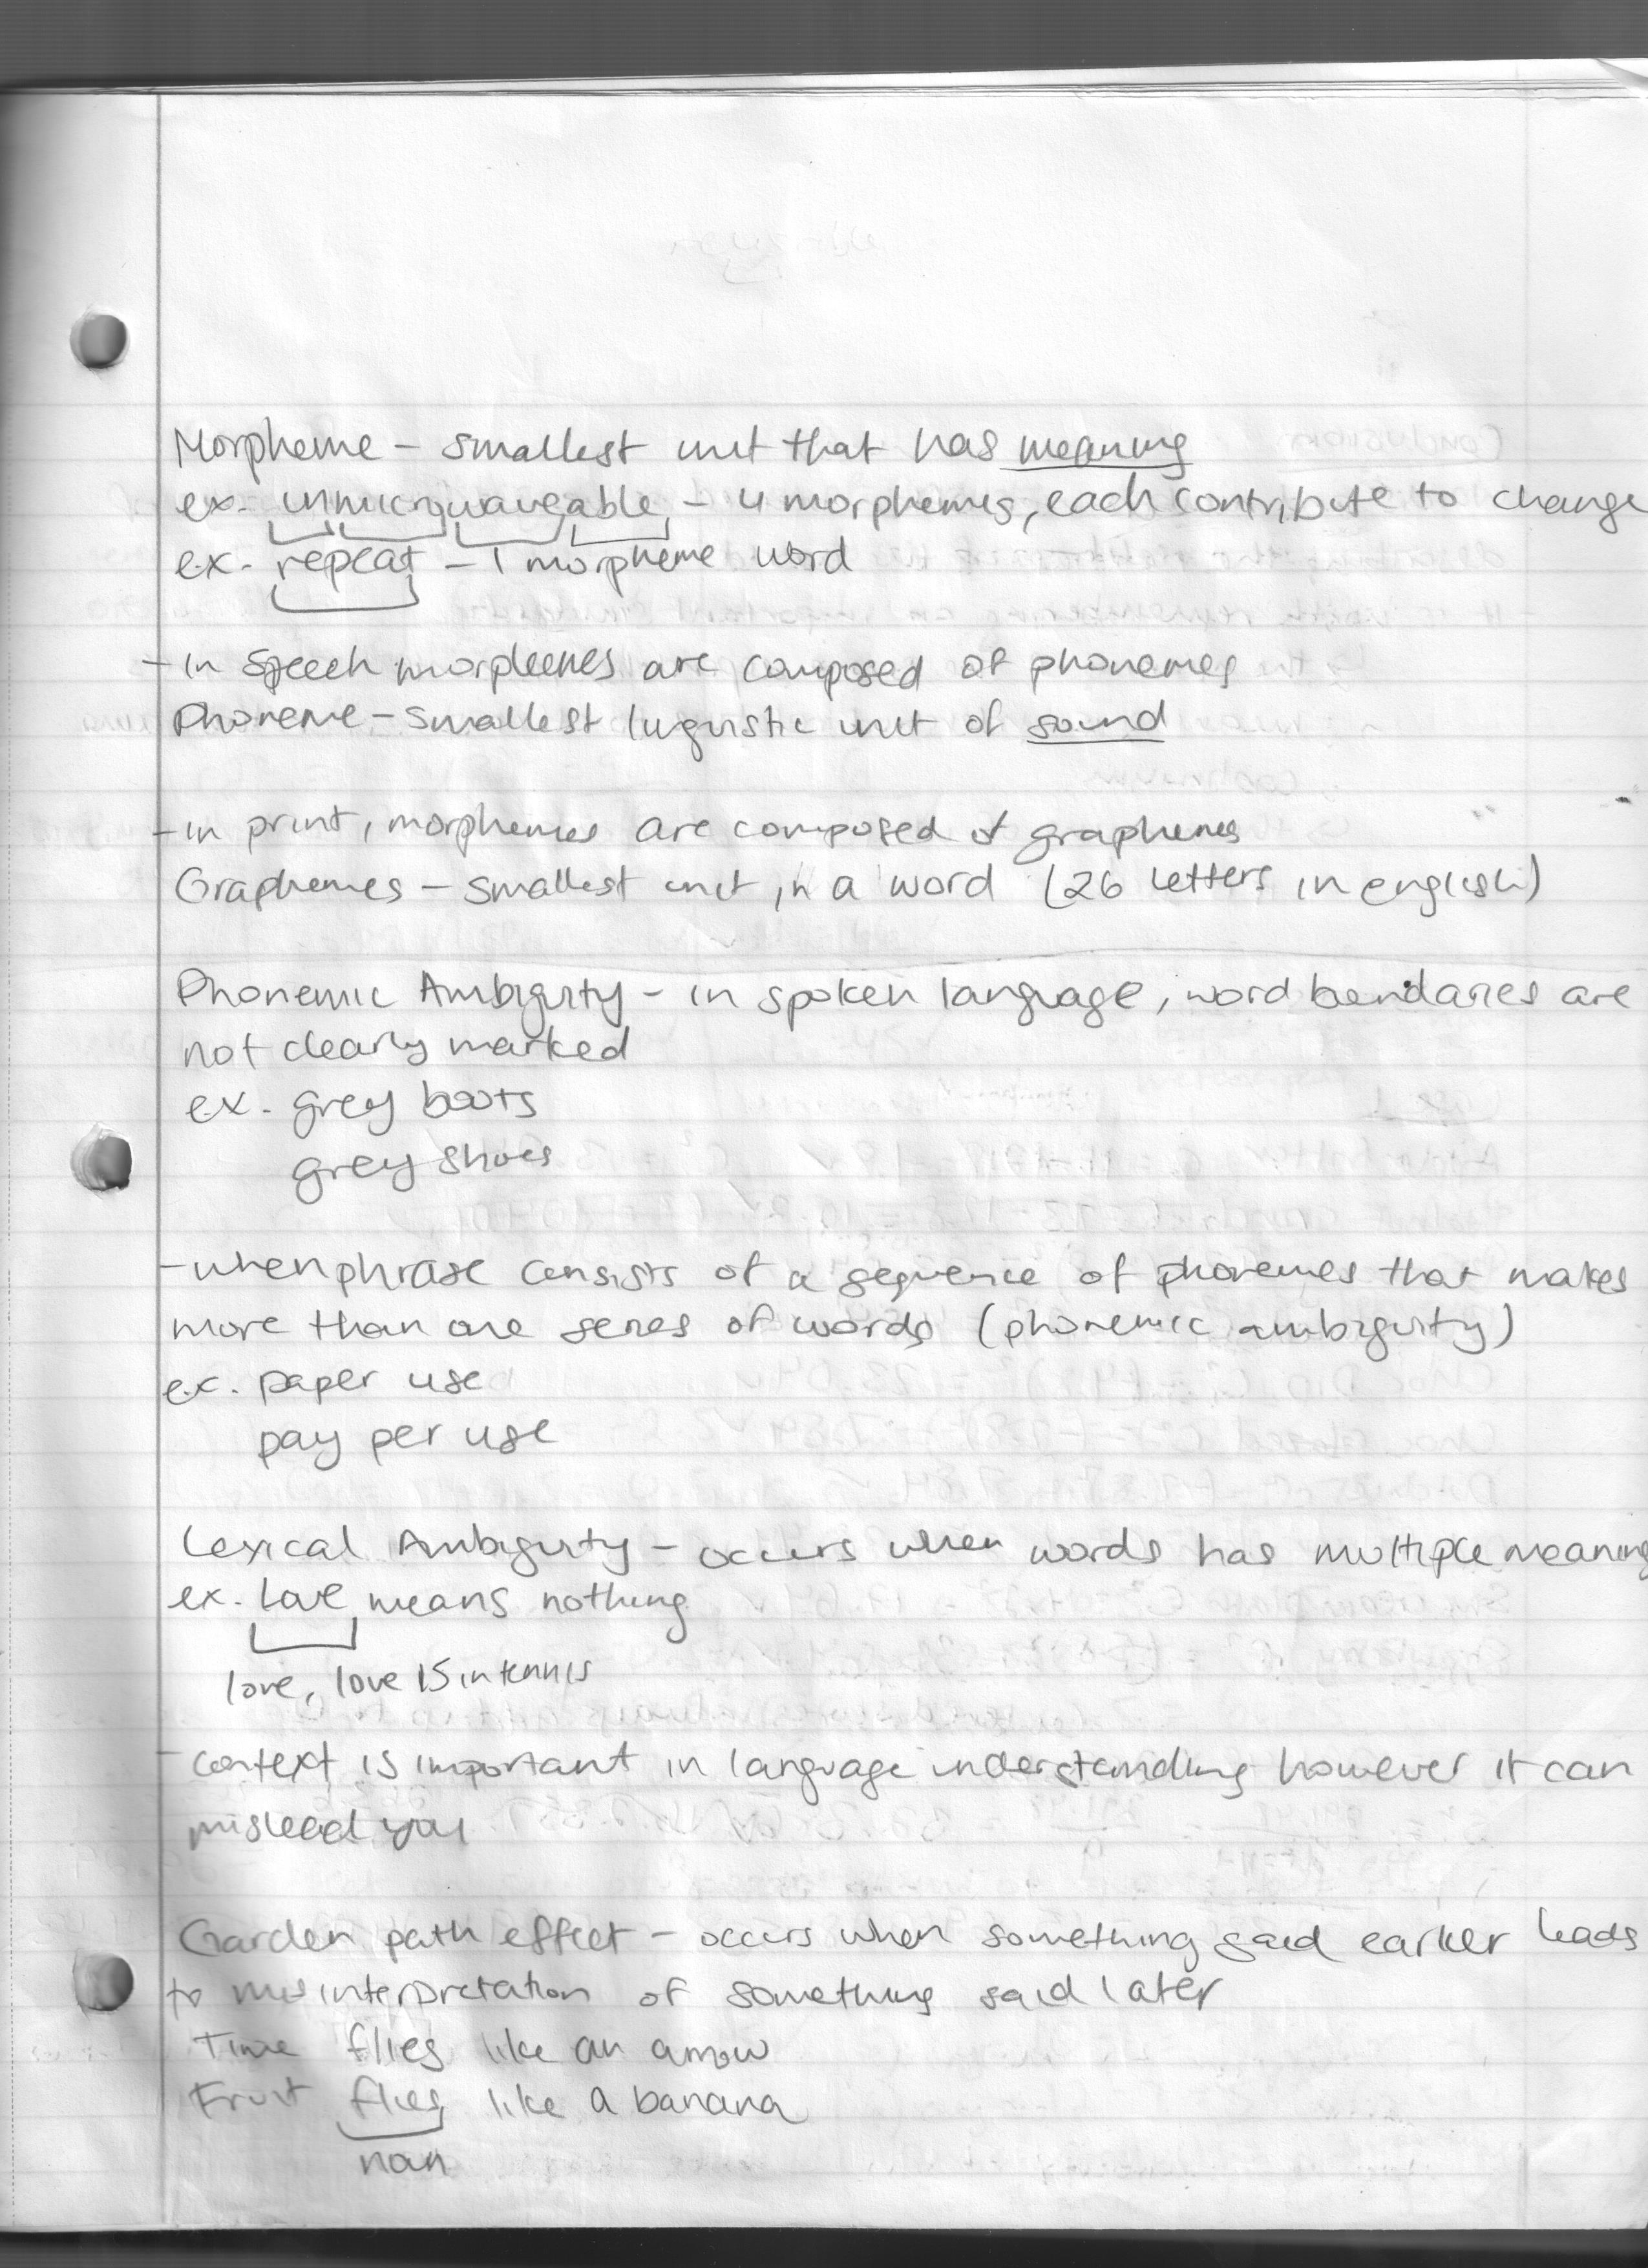 Morpheme - smallest unit that has meaning
ex. unmicrowaveable - 4 morphemes, each contribute to change
ex. repeat - 1 morpheme word
- in speech morphemes are composed of phonemes
Phoneme - smallest linguistic unit of sound
- in print, morphemes are composed of graphemes
Graphemes - smallest unit in a word (26 letters in english)
Phonemic Ambiguity - in spoken language, word boundaries are
not clearly marked
ex. grey boots
grey shoes
- when phrase consists of a sequence of phonemes that makes
more than one series of words (phonemic ambiguity)
ex. paper use
pay per use
Lexical Ambiguity - occurs when words has multiple meaning
ex. Love means nothing
love, love 15 in tennis
- context is important in language understanding however it can
mislead you
Garden path effect - occurs when something said earlier leads
to misinterpretation of something said later
Time flies like an arrow
Fruit flies like a banana
noun